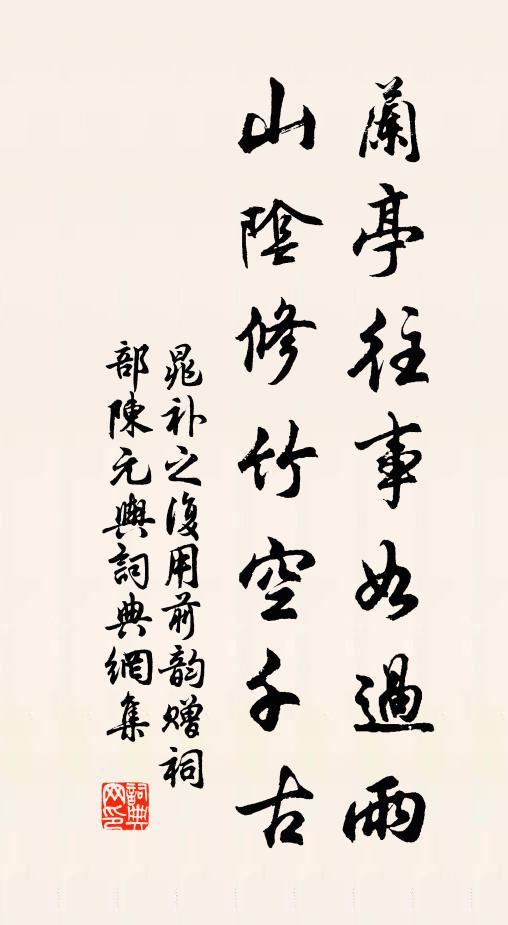 蘭亭往事如過雨
山陰修竹空千古
晁補之復用前韵贈祠
部陳元輿詞典網集
詞典网印